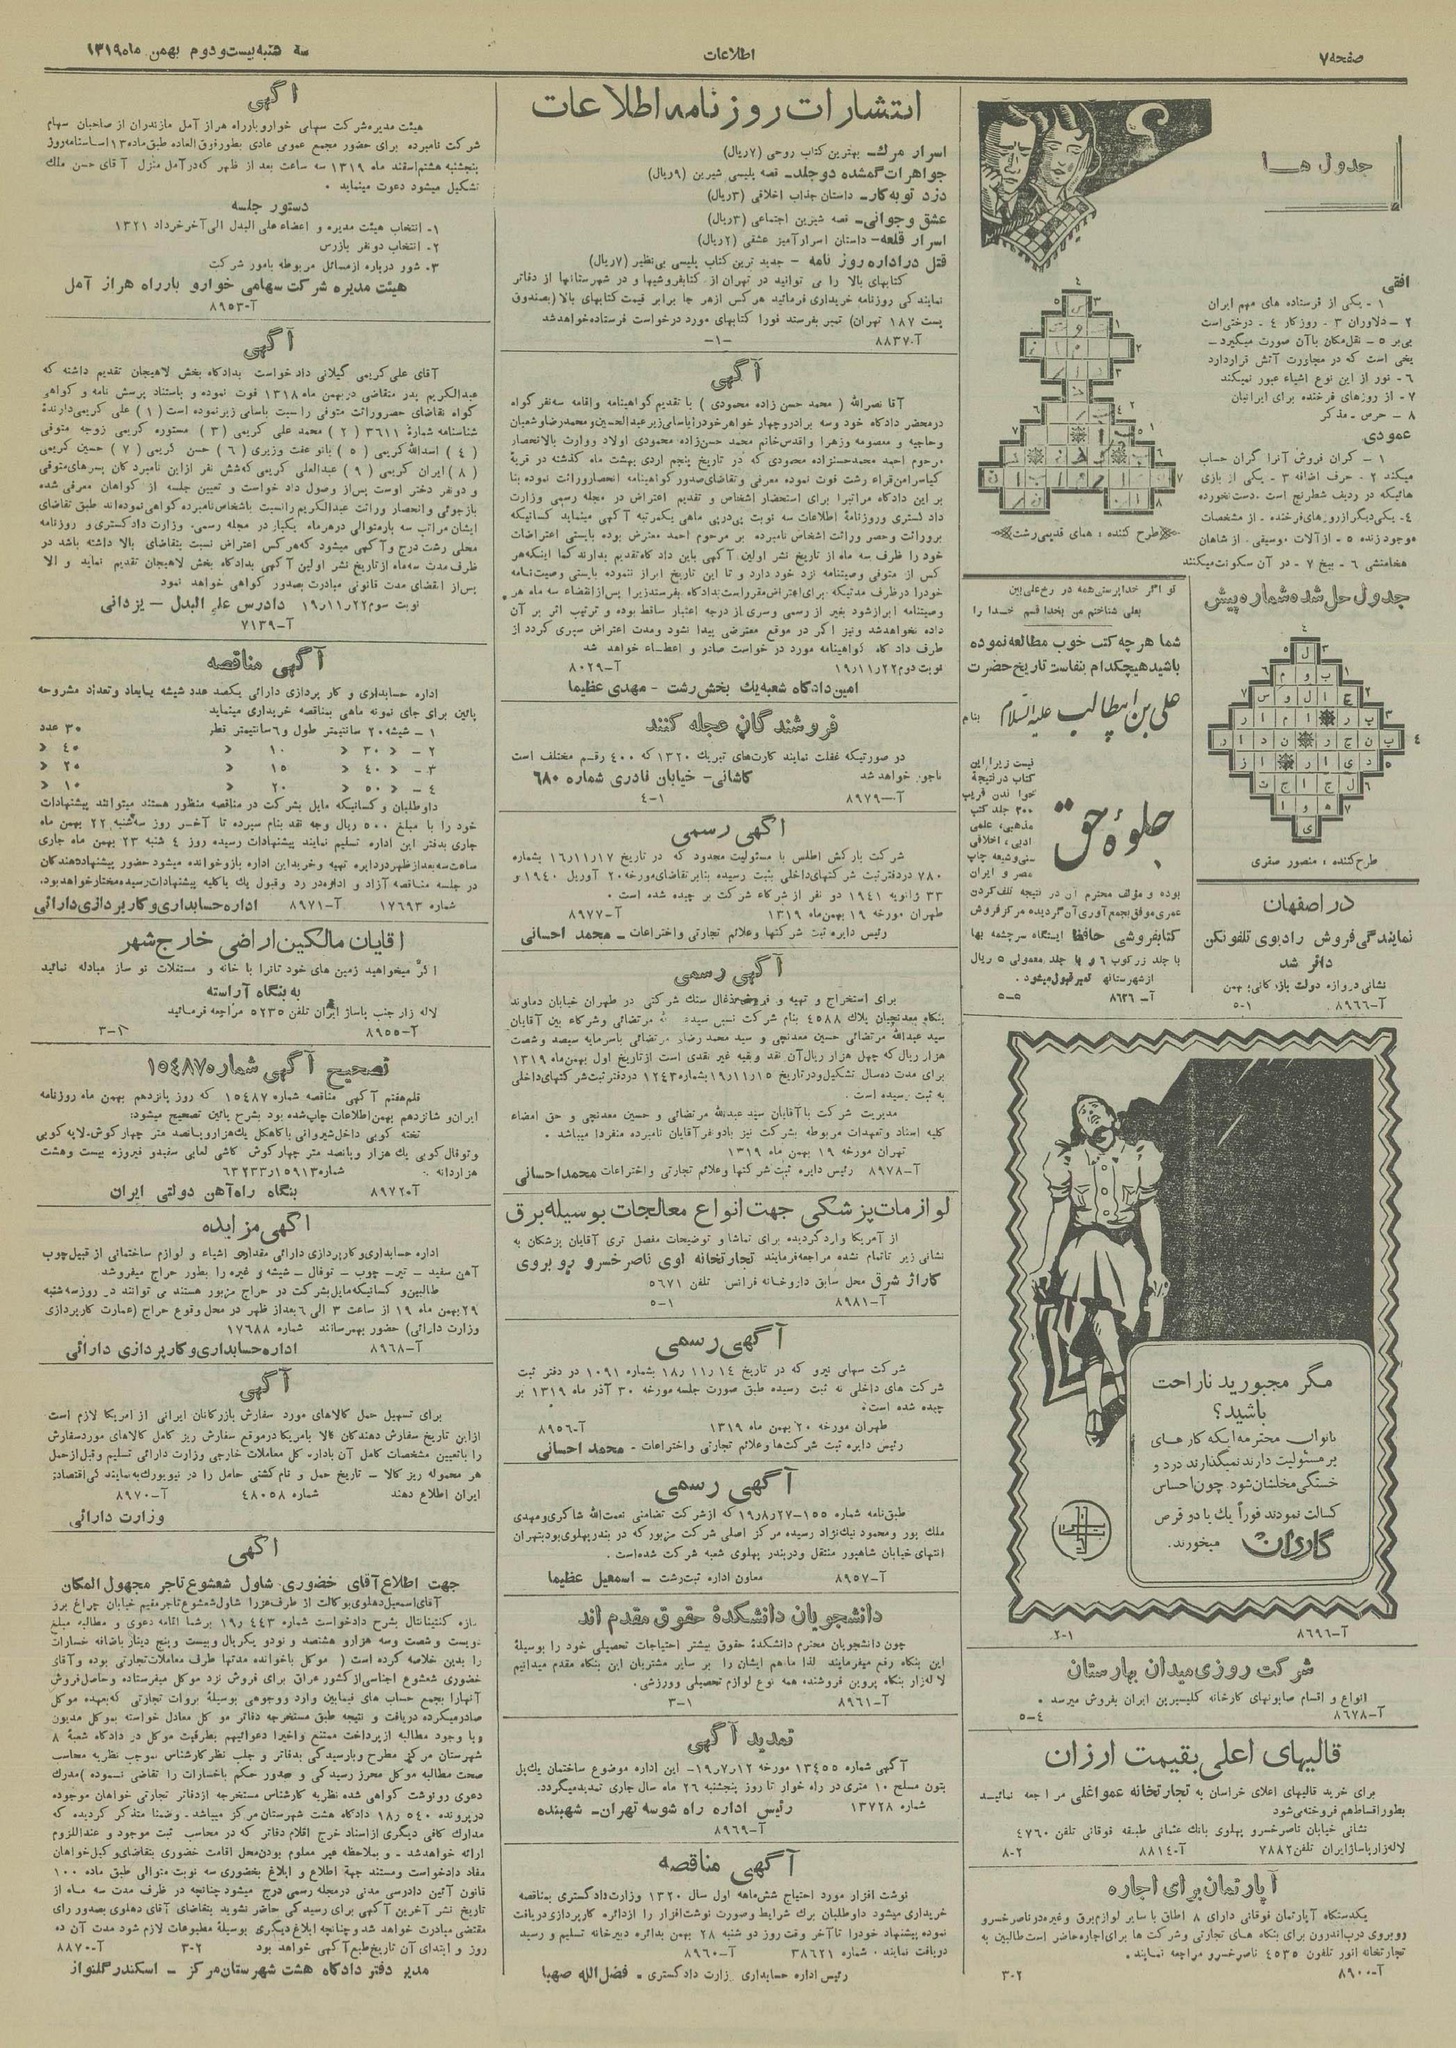 صفحه ۷
اطلاعات
سه شنبه بیست و دوم بهمن ماه ۱۳۱۹
جدول ها
افقی
۱ - یکی از فرستاده های مهم ایران
۲ - دلاوران ۳ - روزگار ۴ - درختی است
بی بر ۵ - نقل مکان با آن صورت میگیرد -
یخی است که در مجاورت آتش قرار دارد
۶ - نور از این نوع اشیاء عبور نمیکند
۷ - از روزهای فرخنده برای ایرانیان
۸ - حرص - مذکر
عمودی
۱ - گران فروش آنرا گران حساب
میکند ۲ - حرف اضافه ۳ - یکی از بازی
هائیکه در ردیف شطرنج است - دست نخورده
۴ - یکی دیگر از روزهای فرخنده - از مشخصات
موجود زنده ۵ - از آلات موسیقی - از شاهان
هخامنشی ۶ - بیخ ۷ - در آن سکونت میکنند
طرح کننده : همای قدیمی رشت
جدول حل شده شماره پیش
طرح کننده : منصور صفری
در اصفهان
نمایندگی فروش رادیوی تلفونکن
دائر شد
نشانی دروازه دولت بازرگانی بهمن
آ-۸۹۶۶ ۱-۵
تو اگر خدا پرستی همه در رخ علی بین
بعلی شناختم من بخدا قسم خدا را
شما هر چه کتب خوب مطالعه نموده
باشید هیچکدام بنفاست تاریخ حضرت
علی بن ابیطالب علیه السلام بنام
جلوه حق
نیست زیرا این
کتاب در نتیجه
خواندن قریب
۳۰۰ جلد کتب
مذهبی، علمی
ادبی، اخلاقی
سنی و شیعه چاپ
مصر و ایران
بوده و مؤلف محترم آن در نتیجه تلف کردن
عمری موفق بجمع آوری آن گردیده مرکز فروش
کتابفروشی حافظ ایستگاه سرچشمه بها
با جلد زرکوب ۶ و با جلد معمولی ۵ ریال
از شهرستانها تمبر قبول میشود.
آ-۸۶۳۶ ۵-۵
مگر مجبورید ناراحت
باشید؟
بانوان محترمه ایکه کارهای
پر مسئولیت دارند نمیگذارند درد و
خستگی مخلشان شود چون احساس
کسالت نمودند فوراً یک یا دو قرص
گاردان میخورند.
آ-۸۶۹۶ ۱-۲
شرکت روزی میدان بهارستان
انواع و اقسام صابونهای کارخانه گلیسیرین ایران بفروش میرسد.
آ-۸۶۷۸ ۴-۵
قالیهای اعلی بقیمت ارزان
برای خرید قالیهای اعلای خراسان به تجارتخانه عمواغلی مراجعه نمائید
بطور اقساط هم فروخته می شود
نشانی خیابان ناصرخسرو پهلوی بانک عثمانی طبقه فوقانی تلفن ۴۷۶۰
لاله زار پاساژ ایران تلفن ۷۸۸۲ آ-۸۸۱۴ ۲-۸
آپارتمان برای اجاره
یکدستگاه آپارتمان فوقانی دارای ۸ اطاق با سایر لوازم برق و غیره در ناصرخسرو
روبروی درب اندرون برای بنگاه های تجارتی و شرکت ها برای اجاره حاضر است طالبین به
تجارتخانه انور تلفون ۴۵۳۵ ناصرخسرو مراجعه نمایند.
آ-۸۹۰۰ ۲-۳
انتشارات روزنامه اطلاعات
اسرار مرگ - بهترین کتاب روحی (۷ ریال)
جواهرات گمشده دو جلد - قصه پلیسی شیرین (۹ ریال)
دزد توبه کار - داستان جذاب اخلاقی (۳ ریال)
عشق و جوانی - قصه شیرین اجتماعی (۳ ریال)
اسرار قلعه - داستان اسرارآمیز عشقی (۲ ریال)
قتل در اداره روزنامه - جدید ترین کتاب پلیسی بی نظیر (۷ ریال)
کتابهای بالا را می توانید در تهران از کتابفروشیها و در شهرستانها از دفاتر
نمایندگی روزنامه خریداری فرمائید هر کس از هر جا برابر قیمت کتابهای بالا (بصندوق
پست ۱۸۷ تهران) تمبر بفرستد فورا کتابهای مورد درخواست فرستاده خواهد شد
آ-۸۸۳۷ -۱-
آگهی
آقا نصرالله (محمد حسن زاده محمودی) با تقدیم گواهینامه و اقامه سه نفر گواه
در محضر دادگاه خود و سه برادر و چهار خواهر خود را باسامی زیر عبدالحسین و محمدرضا و شعبان
و حاجیه و معصومه و زهرا و اقدس خانم محمد حسن زاده محمودی اولاد و وارث بالانحصار
مرحوم احمد محمد حسنزاده محمودی که در تاریخ پنجم اردی بهشت ماه گذشته در قریه
کیاسر امن قراء رشت فوت نموده معرفی و تقاضای صدور گواهینامه انحصار وراثت نموده بنا
بر این دادگاه مراتب را برای استحضار اشخاص و تقدیم اعتراض در مجله رسمی وزارت
دادگستری و روزنامه اطلاعات سه نوبت پی در پی ماهی یکمرتبه آگهی مینماید کسانیکه
بر وراثت و حصر وراثت اشخاص نامبرده بر مرحوم احمد معترض بوده بایستی اعتراضات
خود را ظرف سه ماه از تاریخ نشر اولین آگهی باین دادگاه تقدیم بدارند کما اینکه هر
کس از متوفی وصیتنامه نزد خود دارد و تا این تاریخ ابراز ننموده بایستی وصیت نامه
خود را در ظرف مدتیکه برای اعتراض مقرر است بدادگاه بفرستد زیرا پس از انقضاء سه ماه هر
وصیتنامه ابراز شود بغیر از رسمی و سری از درجه اعتبار ساقط بوده و ترتیب اثر بر آن
داده نخواهد شد و نیز اگر در موقع معترضی پیدا نشود و مدت اعتراض سپری گردد از
طرف دادگاه گواهینامه مورد درخواست صادر و اعطاء خواهد شد
نوبت دوم ۱۹/۱۱/۲۲ آ-۸۰۲۹
امین دادگاه شعبه یک بخش رشت - مهدی عظیما
فروشندگان عجله کنند
در صورتیکه غفلت نمایند کارتهای تبریک ۱۳۲۰ که ۴۰۰ رقم مختلف است
ناجور خواهد شد کاشانی - خیابان قادری شماره ۶۸۰
آ-۸۹۷۹ ۱-۴
آگهی رسمی
شرکت بارکش اطلس با مسئولیت محدود که در تاریخ ۱۶/۱۱/۱۷ بشماره
۷۸۰ در دفتر ثبت شرکتهای داخلی بثبت رسیده بنابر تقاضای مورخه ۲۰ آوریل ۱۹۴۰ و
۳۳ ژانویه ۱۹۴۱ دو نفر از شرکاء شرکت بر چیده شده است.
طهران مورخه ۱۹ بهمن ماه ۱۳۱۹ آ-۸۹۷۷
رئیس دایره ثبت شرکتها و علائم تجارتی و اختراعات - محمد احسانی
آگهی رسمی
برای استخراج و تهیه و فروش ذغال سنگ شرکتی در طهران خیابان دماوند
بنگاه معدنچیان پلاک ۴۵۸۸ بنام شرکت نسبی سیدعبدالله مرتضائی و شرکاء بین آقایان
سید عبدالله مرتضائی حسین معدنچی و سید محمد رضا مرتضائی باسرمایه سیصد و شصت
هزار ریال که چهل هزار ریال آن نقد و بقیه غیر نقدی است از تاریخ اول بهمن ماه ۱۳۱۹
برای مدت ده سال تشکیل و در تاریخ ۱۹/۱۱/۱۵ بشماره ۱۲۴۳ در دفتر ثبت شرکتهای داخلی
به ثبت رسیده است.
مدیریت شرکت با آقایان سید عبدالله مرتضائی و حسین معدنچی و حق امضاء
کلیه اسناد و تعهدات مربوطه بشرکت نیز با دو نفر آقایان نامبرده منفردا میباشد.
تهران مورخه ۱۹ بهمن ماه ۱۳۱۹
آ-۸۹۷۸ رئیس دایره ثبت شرکتها و علائم تجارتی و اختراعات محمد احسانی
لوازمات پزشکی جهت انواع معالجات بوسیله برق
از آمریکا وارد گردیده برای تماشا و توضیحات مفصل تری آقایان پزشکان به
نشانی زیر تا تمام نشده مراجعه فرمایند تجارتخانه لوی ناصرخسرو روبروی
گاراژ شرق محل سابق داروخانه فرانس تلفن ۵۶۷۱
آ-۸۹۸۱ ۱-۵
آگهی رسمی
شرکت سهامی نیرو که در تاریخ ۱۸/۱۱/۱۴ بشماره ۱۰۹۱ در دفتر ثبت
شرکت های داخلی به ثبت رسیده طبق صورت جلسه مورخه ۳۰ آذر ماه ۱۳۱۹ بر
چیده شده است.
طهران مورخه ۲۰ بهمن ماه ۱۳۱۹ آ-۸۹۵۶
رئیس دایره ثبت شرکت ها و علائم تجارتی و اختراعات - محمد احسانی
آگهی رسمی
طبق نامه شماره ۱۵۵-۱۹/۸/۲۷ که از شرکت تضامنی نعمت الله شاکری و مهدی
ملک پور و محمود نیک نژاد رسیده مرکز اصلی شرکت مزبور که در بندر پهلوی بود بتهران
انتهای خیابان شاهپور منتقل و در بندر پهلوی شعبه شرکت شده است.
آ-۸۹۵۷ معاون اداره ثبت رشت - اسمعیل عظیما
دانشجویان دانشکده حقوق مقدم اند
چون دانشجویان محترم دانشکده حقوق بیشتر احتیاجات تحصیلی خود را بوسیله
این بنگاه رفع میفرمایند لذا ما هم ایشان را بر سایر مشتریان این بنگاه مقدم میدانیم
لاله زار بنگاه پروین فروشنده همه نوع لوازم تحصیلی و ورزشی.
آ-۸۹۶۱ ۱-۳
تمدید آگهی
آگهی شماره ۱۳۴۵۵ مورخه ۱۹/۷/۱۲- این اداره موضوع ساختمان یک پل
بتون مسلح ۱۰ متری در راه خوار تا روز پنجشنبه ۲۶ ماه سال جاری تمدید میگردد.
شماره ۱۳۷۲۸ رئیس اداره راه شوسه تهران - شهبنده
آ-۸۹۶۹
آگهی مناقصه
نوشت افزار مورد احتیاج شش ماهه اول سال ۱۳۲۰ وزارت دادگستری بمناقصه
خریداری میشود داوطلبان برگ شرایط و صورت نوشت افزار را از دائره کارپردازی دریافت
نموده پیشنهاد خود را تا آخر وقت روز دو شنبه ۲۸ بهمن بدائره دبیرخانه تسلیم و رسید
دریافت نمایند. شماره ۳۸۶۲۱ آ-۸۹۶۰
رئیس اداره حسابداری وزارت دادگستری - فضل الله صهبا
آگهی
هیئت مدیره شرکت سهامی خواروبار راه هراز آمل مازندران از صاحبان سهام
شرکت نامبرده برای حضور مجمع عمومی عادی بطور فوق العاده طبق ماده ۱۳ اساسنامه روز
پنجشنبه هشتم اسفند ماه ۱۳۱۹ سه ساعت بعد از ظهر که در آمل منزل آقای حسن ملک
تشکیل میشود دعوت مینماید.
دستور جلسه
۱- انتخاب هیئت مدیره و اعضاء علی البدل الی آخر خرداد ۱۳۲۱
۲- انتخاب دو نفر بازرس
۳- شور درباره از مسائل مربوطه بامور شرکت
هیئت مدیره شرکت سهامی خواروبار راه هراز آمل
آ-۸۹۵۳
آگهی
آقای علی کریمی گیلانی دادخواست بدادگاه بخش لاهیجان تقدیم داشته که
عبدالکریم پدر متقاضی در بهمن ماه ۱۳۱۸ فوت نموده و باستناد پرسش نامه و گواهی
گواه تقاضای حصر وراثت متوفی را نسبت باسامی زیر نموده است (۱) علی کریمی دارنده
شناسنامه شماره ۳۶۱۱ (۲) محمد علی کریمی (۳) مستوره کریمی زوجه متوفی
(۴) اسدالله کریمی (۵) بانو عفت وزیری (۶) حسن کریمی (۷) حسین کریمی
(۸) ایران کریمی (۹) عبدالعلی کریمی که شش نفر از این نامبردگان پسرهای متوفی
و دو نفر دختر اوست پس از وصول دادخواست و تعیین جلسه از گواهان معرفی شده
بازجوئی و انحصار وراثت عبدالکریم را نسبت باشخاص نامبرده گواهی نموده اند طبق تقاضای
ایشان مراتب سه بار متوالی در هر ماه یکبار در مجله رسمی وزارت دادگستری و روزنامه
محلی رشت درج و آگهی میشود که هر کس اعتراض نسبت بتقاضای بالا داشته باشد در
ظرف مدت سه ماه از تاریخ نشر اولین آگهی بدادگاه بخش لاهیجان تقدیم نماید و الا
پس از انقضای مدت قانونی مبادرت بصدور گواهی خواهد نمود
نوبت سوم ۱۹/۱۱/۲۲ دادرس علی البدل - یزدانی
آ-۷۱۳۹
آگهی مناقصه
اداره حسابداری و کارپردازی دارائی یکصد عدد شیشه بابعاد و تعداد مشروحه
پائین برای جای نمونه ماهی بمناقصه خریداری مینماید
۱ - شیشه ۲۰ سانتیمتر طول و ۶ سانتیمتر قطر ۳۰ عدد
۲ - « ۳۰ « ۱۰ « ۴۰ «
۳ - « ۴۰ « ۱۵ « ۲۰ «
۴ - « ۵۰ « ۲۰ « ۱۰ «
داوطلبان و کسانیکه مایل بشرکت در مناقصه منظور هستند میتوانند پیشنهادات
خود را با مبلغ ۵۰۰ ریال وجه نقد بنام سپرده تا آخر روز سه شنبه ۲۲ بهمن ماه
جاری بدفتر این اداره تسلیم نمایند پیشنهادات رسیده روز ۴ شنبه ۲۳ بهمن ماه جاری
ساعت سه بعد از ظهر در دایره تهیه و خرید این اداره باز و خوانده میشود حضور پیشنهاد دهندگان
در جلسه مناقصه آزاد و اداره در رد و قبول یک یا کلیه پیشنهادات رسیده مختار خواهد بود.
شماره ۱۷۶۹۳ آ-۸۹۷۱ اداره حسابداری و کارپردازی دارائی
آقایان مالکین اراضی خارج شهر
اگر میخواهید زمین های خود تانرا با خانه و مستغلات نو ساز مبادله نمائید
به بنگاه آراسته
لاله زار جنب پاساژ ایران تلفن ۵۲۳۵ مراجعه فرمائید
آ-۸۹۵۵ ۱-۳
تصحیح آگهی شماره ۱۵۴۸۷
قلم هفتم آگهی مناقصه شماره ۱۵۴۸۷ که روز پانزدهم بهمن ماه روزنامه
ایران و شانزدهم بهمن اطلاعات چاپ شده بود بشرح پائین تصحیح میشود:
تخته کوبی داخل شیروانی با کاهگل یک هزار و پانصد متر چهار گوش، لابه کوبی
و توفال کوبی یک هزار و پانصد متر چهار گوش کاشی لعابی سفید و فیروزه بیست و هشت
هزار دانه. شماره ۶۳۲۳۳/۱۵۹۱۳
آ-۸۹۷۲ بنگاه راه آهن دولتی ایران
آگهی مزایده
اداره حسابداری و کارپردازی دارائی مقداری اشیاء و لوازم ساختمانی از قبیل چوب
آهن سفید - تیر - چوب - توفال - شیشه و غیره را بطور حراج میفروشد.
طالبین و کسانیکه مایل بشرکت در حراج مزبور هستند می توانند در روز سه شنبه
۲۹ بهمن ماه ۱۹ از ساعت ۳ الی ۶ بعد از ظهر در محل وقوع حراج (عمارت کارپردازی
وزارت دارائی) حضور بهمرسانند شماره ۱۷۶۸۸
آ-۸۹۶۸ اداره حسابداری و کارپردازی دارائی
آگهی
برای تسهیل حمل کالاهای مورد سفارش بازرگانان ایرانی از امریکا لازم است
از این تاریخ سفارش دهندگان کالا بامریکا در موقع سفارش ریز کامل کالاهای مورد سفارش
را با تعیین مشخصات کامل آن باداره کل معاملات خارجی وزارت دارائی تسلیم و قبل از حمل
هر محموله ریز کالا - تاریخ حمل و نام کشتی حامل را در نیویورک به نماینده اقتصادی
ایران اطلاع دهند شماره ۴۸۰۵۸ آ-۸۹۷۰
وزارت دارائی
آگهی
جهت اطلاع آقای خضوری شاول شعشوع تاجر مجهول المکان
آقای اسمعیل دهلوی بوکالت از طرف عزرا شاول شعشوع تاجر مقیم خیابان چراغ برق
سازه کنتیننتال بشرح دادخواست شماره ۱۹/۴۴۳ برشما اقامه دعوی و مطالبه مبلغ
دویست و شصت و سه هزار و هشتصد و نود و یکریال و بیست و پنج دینار باضافه خسارات
را بدین خلاصه کرده است (موکل باخوانده مدتها طرف معاملات تجارتی بوده و آقای
خضوری شعشوع اجناسی از کشور عراق برای فروش نزد موکل میفرستاده و حاصل فروش
آنها را بجمع حساب های فیمابین وارد و وجوهی بوسیله بروات تجارتی که بعهده موکل
صادر میکرده دریافت و نتیجه طبق مستخرجه دفاتر موکل معادل خواسته بموکل مدیون
و با وجود مطالبه از پرداخت ممتنع و اخیرا دعوائیهم بطرفیت موکل در دادگاه شعبه ۸
شهرستان مرکز مطرح و با رسیدگی بدفاتر و جلب نظر کارشناس بموجب نظریه محاسب
صحت مطالبه موکل محرز رسیدگی و صدور حکم با خسارات را تقاضی نموده) مدرک
دعوی رونوشت گواهی شده نظریه کارشناس مستخرجه از دفاتر تجارتی خواهان موجوده
در پرونده ۱۸/۵۴۰ دادگاه هشت شهرستان مرکز میباشد - و ضمنا متذکر گردیده که
مدارک کافی دیگری از اسناد خرج اقلام دفاتر که در محاسب ثبت موجود و عنداللزوم
ارائه خواهد شد - و بملاحظه غیر معلوم بودن محل اقامت خضوری بتقاضای وکیل خواهان
مفاد دادخواست و مستند جهة اطلاع و ابلاغ بخضوری سه نوبت متوالی طبق ماده ۱۰۰
قانون آئین دادرسی مدنی در مجله رسمی درج میشود چنانچه در ظرف مدت سه ماه از
تاریخ نشر آخرین آگهی برای رسیدگی حاضر نشوید بتقاضای آقای دهلوی بصدور رای
مقتضی مبادرت خواهد شد و چنانچه ابلاغ دیگری بوسیله مطبوعات لازم شود مدت آن ده
روز و ابتدای آن تاریخ طبع آگهی خواهد بود ۲-۳ آ-۸۸۷۰
مدیر دفتر دادگاه هشت شهرستان مرکز - اسکندر گلنواز